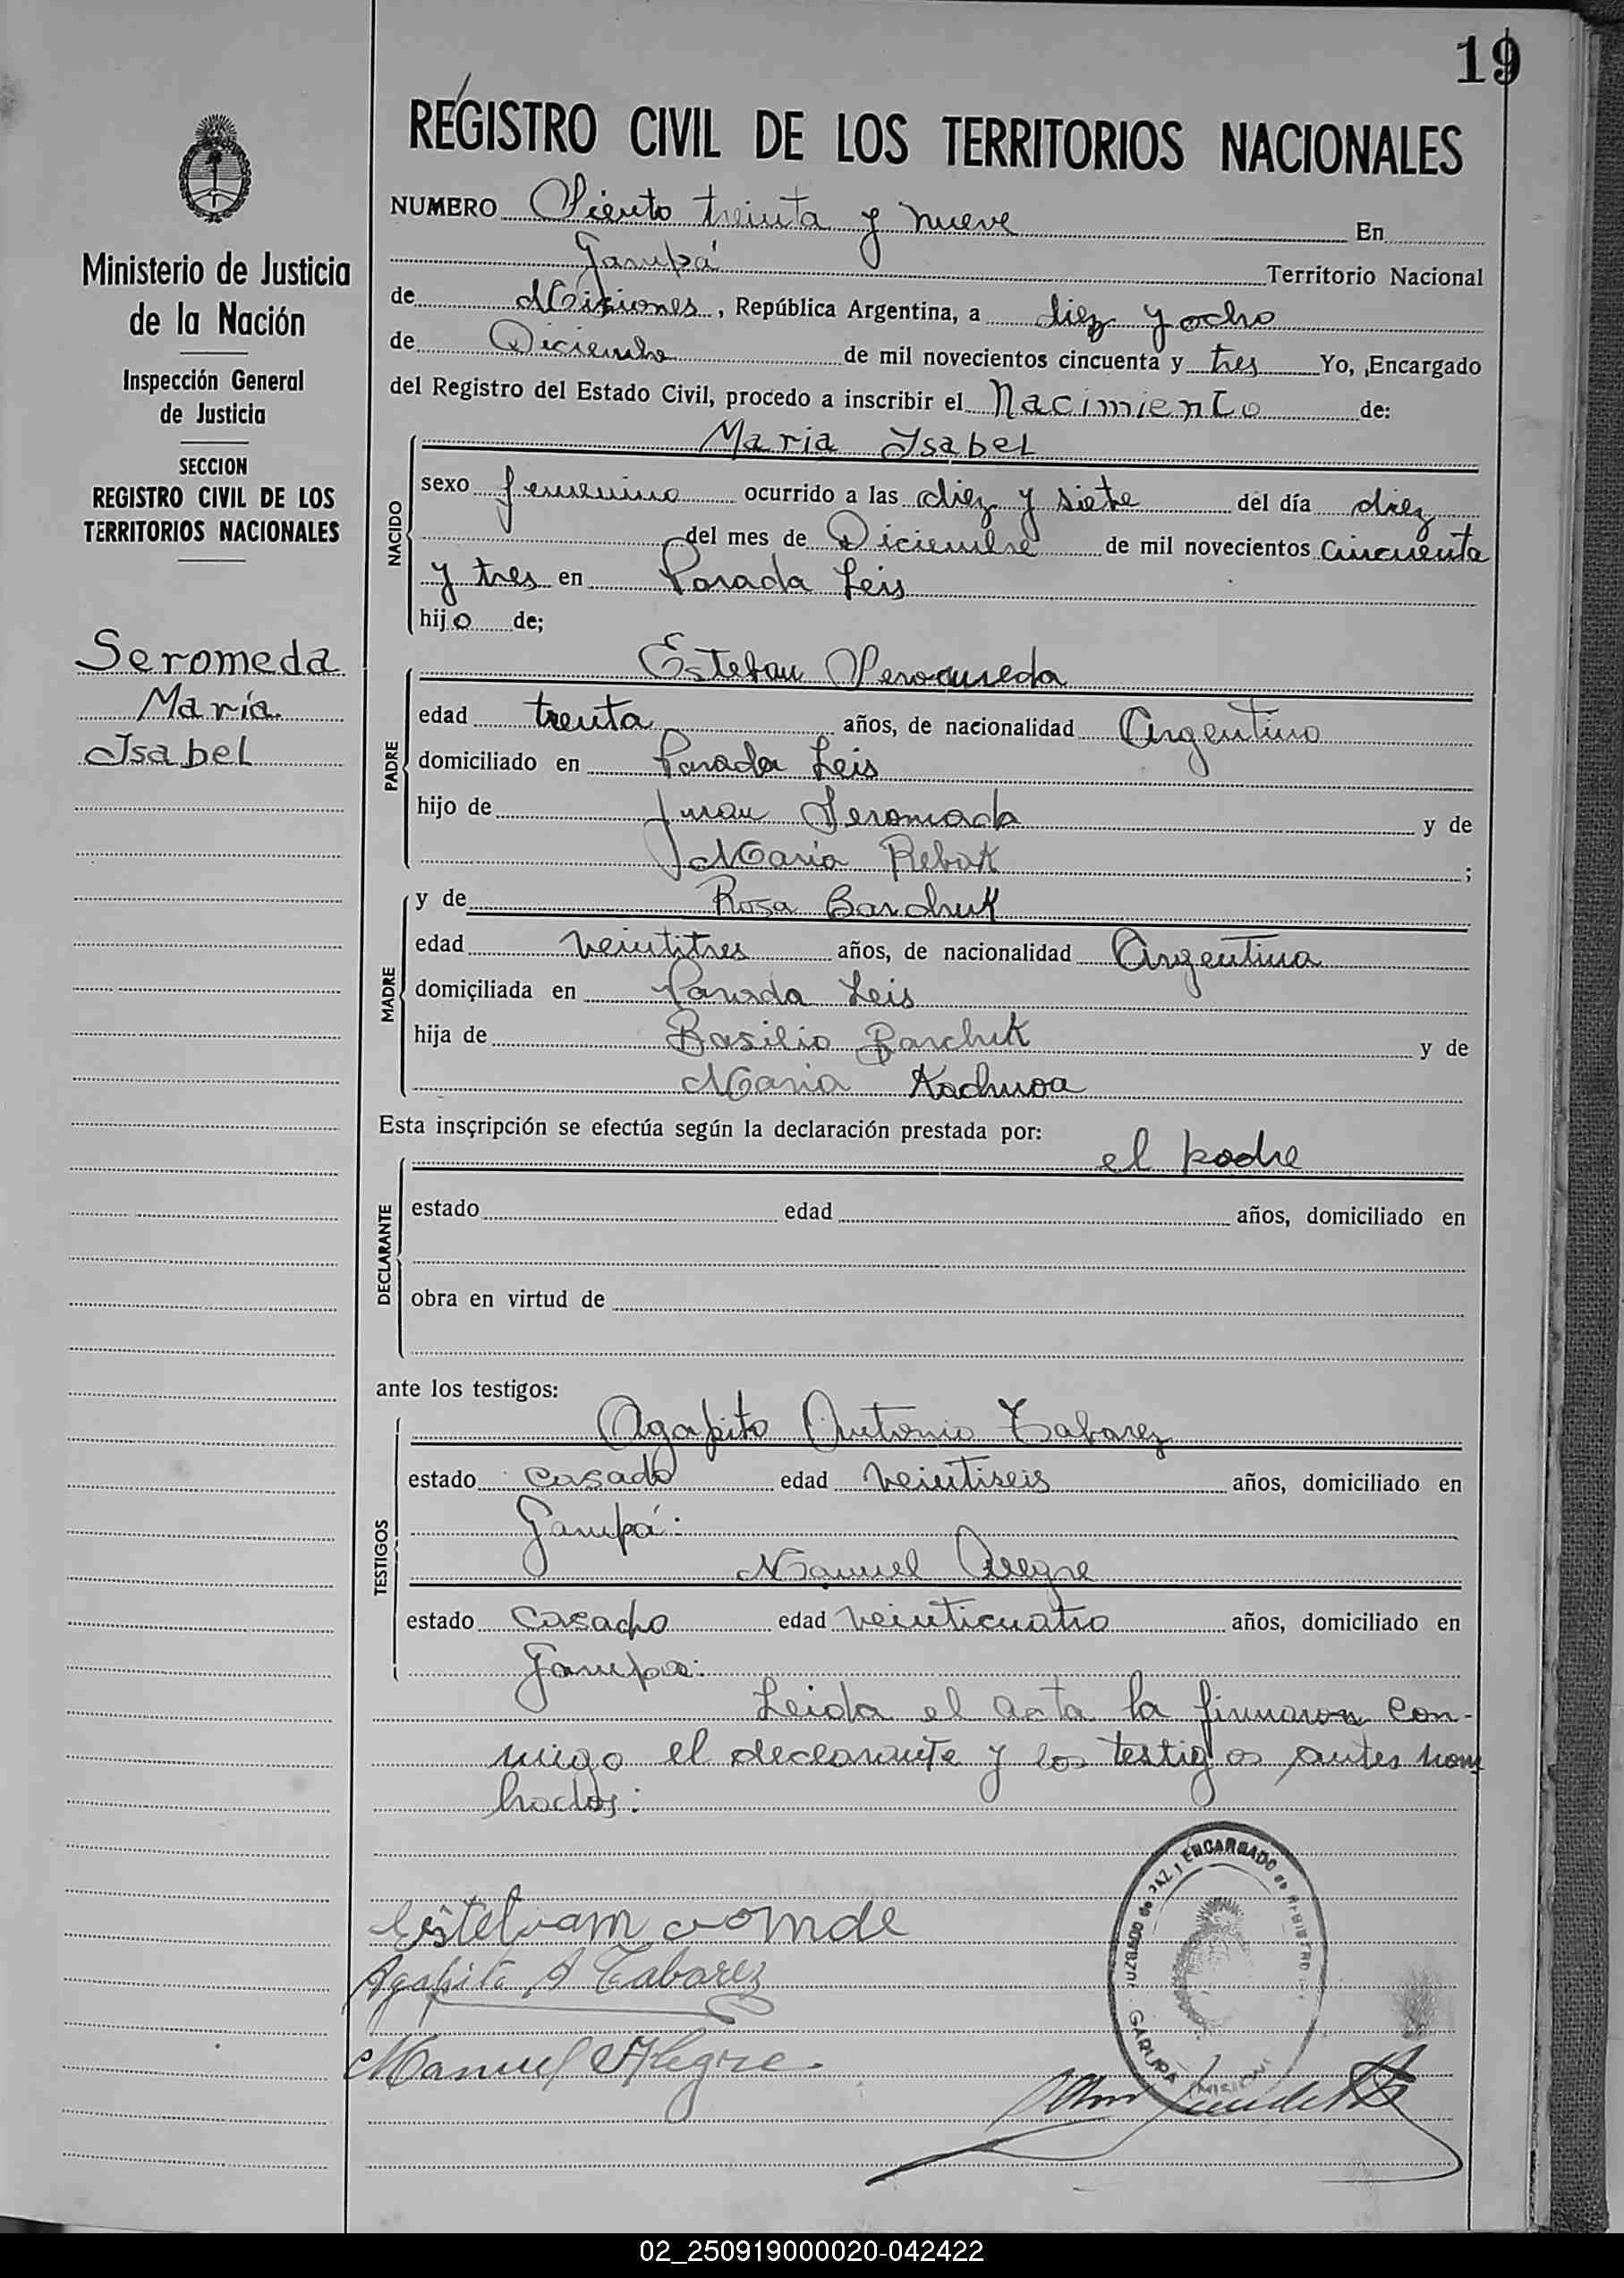 19
REGISTRO CIVIL DE LOS TERRITORIOS NACIONALES
Ministerio de Justicia
de la Nación
Inspección General
de Justicia
SECCION
REGISTRO CIVIL DE LOS
TERRITORIOS NACIONALES
Seromeda
María
Isabel
NUMERO Ciento treinta y nueve En
Garupá Territorio Nacional
de Misiones, República Argentina, a diez y ocho
de Diciembre de mil novecientos cincuenta y tres Yo, Encargado
del Registro del Estado Civil, procedo a inscribir el Nacimiento de:
NACIDO
Maria Isabel
sexo femenino ocurrido a las diez y siete del día diez
del mes de Diciembre de mil novecientos cincuenta
y tres en Parada Leis
hijo de;
PADRE
Esteban Seromeda
edad treinta años, de nacionalidad Argentino
domiciliado en Parada Leis
hijo de Juan y de
Maria Rebak ;
MADRE
y de Rosa Barchuk
edad veintitres años, de nacionalidad Argentina
domiciliada en Parada Leis
hija de Basilio Barchuk y de
Maria
Esta inscripción se efectúa según la declaración prestada por:
el padre
DECLARANTE
estado edad años, domiciliado en
obra en virtud de
ante los testigos:
TESTIGOS
Agapito Antonio Tabarez
estado casado edad veintiseis años, domiciliado en
Garupá:
Manuel Alegre
estado casado edad veinticuatro años, domiciliado en
Garupa:
Leida el acta la firmaron con-
migo el declarante y los testigos antes nom
brados:
Agapito A Tabarez
Manuel Alegre
JUZGADO de PAZ y ENCARGADO de REGISTRO
GARUPA MISIONES
02_250919000020-042422